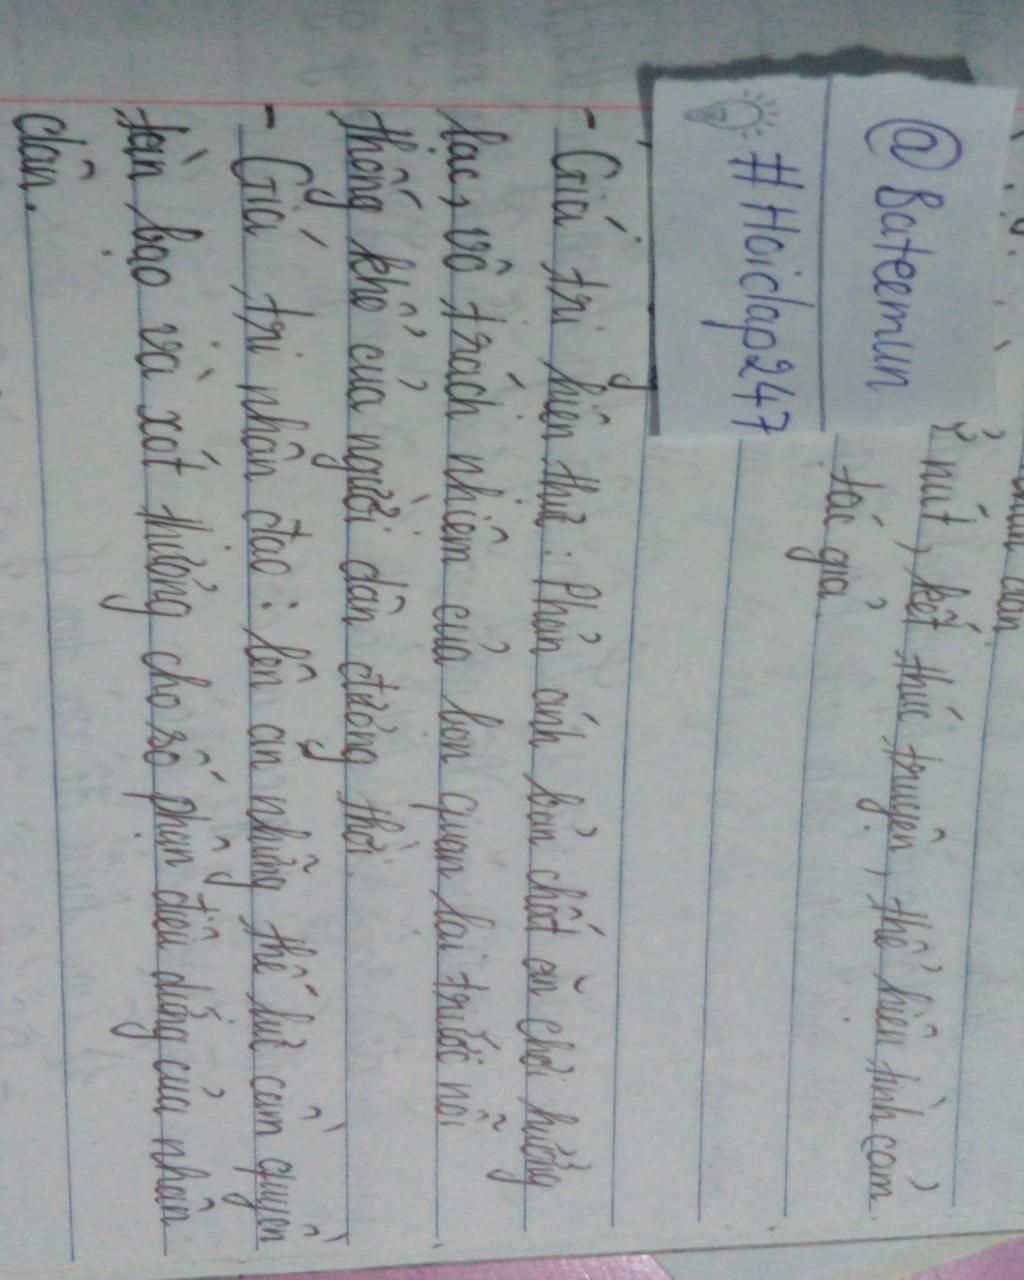 nút, kết thúc truyện, thể hiện tình cảm
tác giả
@Bateemun
#Hoidap247
- Giá trị hiện thực: Phản ánh bản chất ăn chơi hưởng
lạc, vô trách nhiệm của bọn quan lại trước nỗi
thống khổ của người dân đương thời.
- Giá trị nhân đạo: lên án những thế lực cầm quyền
tàn bạo và xót thương cho số phận
của nhân
dân.